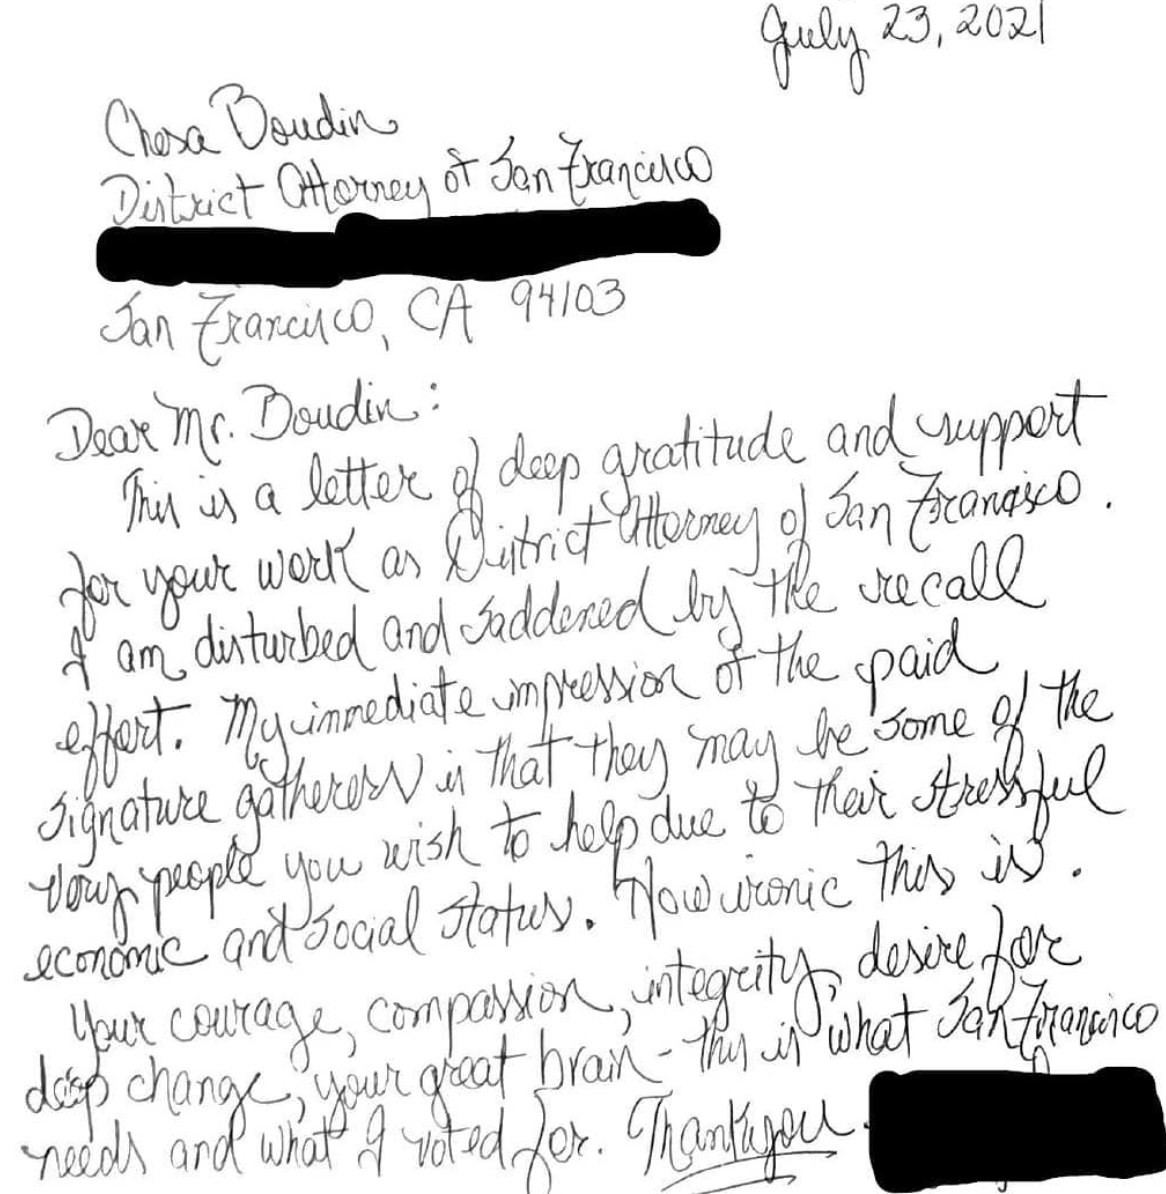 July 23, 2021
Chesa Boudin
District Attorney of San Francisco
San Francisco, CA 94103
Dear Mr. Boudin:
This is a letter of deep gratitude and support
for your work as District Attorney of San Francisco.
I am disturbed and saddened by the recall
effort. My immediate impression of the paid
signature gatherers is that they may be some of the
very people you wish to help due to their stressful
economic and social status. How ironic this is.
Your courage, compassion, integrity, desire for
deep change, your great brain - this is what San Francisco
needs and what I voted for. Thank you.